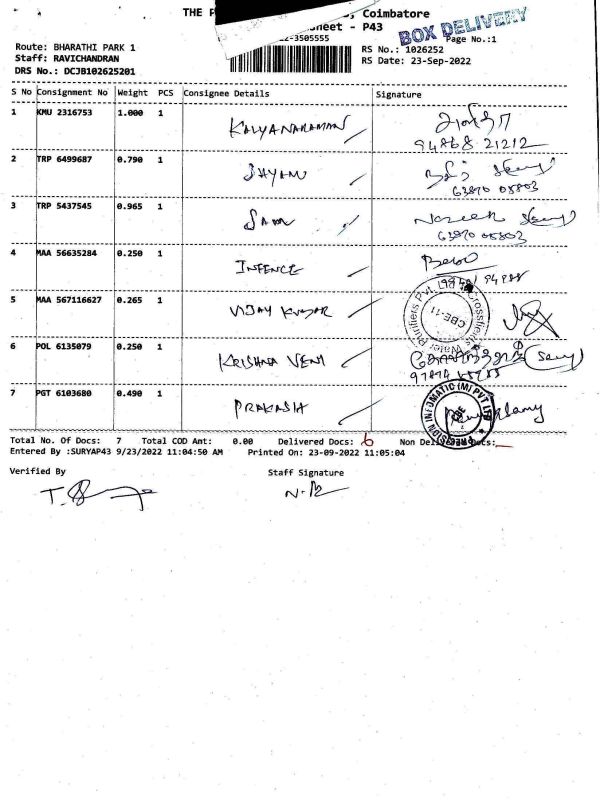 THE P , Coimbatore
sheet - P43
BOX DELIVERY
Page No.:1
22-3505555
Route: BHARATHI PARK 1
RS No.: 1026252
Staff: RAVICHANDRAN
RS Date: 23-Sep-2022
DRS No.: DCJB102625201
S No Consignment No Weight PCS Consignee Details Signature
1 KMU 2316753 1.000 1 KALYANARAMAN
94868 21212
2 TRP 6499687 0.790 1
63870 05803
3 TRP 5437545 0.965 1
63870 05803
4 MAA 56635284 0.250 1 INFENCE
5 MAA 567116627 0.265 1 VIJAY KUMAR
Crossfields Water Purifiers Pvt. Ltd
CBE-11
6 POL 6135079 0.250 1 KRISHNA VENI
7 PGT 6103680 0.490 1 PRAKASH
PRECISION INFOMATIC (M) PVT LTD
CBE
Total No. Of Docs: 7 Total COD Amt: 0.00 Delivered Docs: 6 Non Delivered Docs:
Entered By :SURYAP43 9/23/2022 11:04:50 AM Printed On: 23-09-2022 11:05:04
Verified By Staff Signature